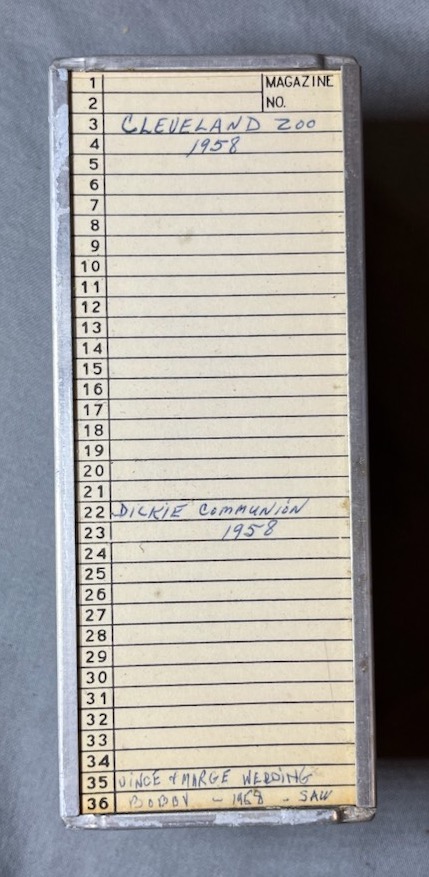 1 MAGAZINE
2 NO.
3 CLEVELAND ZOO
4 1958
5
6
7
8
9
10
11
12
13
14
15
16
17
18
19
20
21
22 DICKIE COMMUNION
23 1958
24
25
26
27
28
29
30
31
32
33
34
35 VINCE & MARGE WEDDING
36 BOBBY - 1958 - SAW